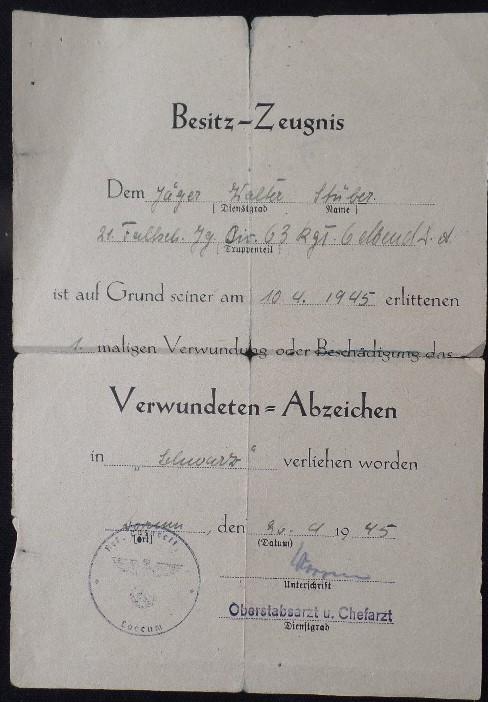 Besitz-Zeugnis
Dem Jäger Walter Stüber.
( Dienstgrad Name )
21. Fallsch. Jg. Div. 63 Rgt.
( Truppenteil )
ist auf Grund seiner am 10. 4. 1945 erlittenen
1. maligen Verwundung oder Beschädigung das
Verwundeten = Abzeichen
in „Schwarz“ verliehen worden
, den 20. 4 1945
(Ort)
(Datum)
Unterschrift
Oberstabsarzt u. Chefarzt
Dienstgrad
Loccum